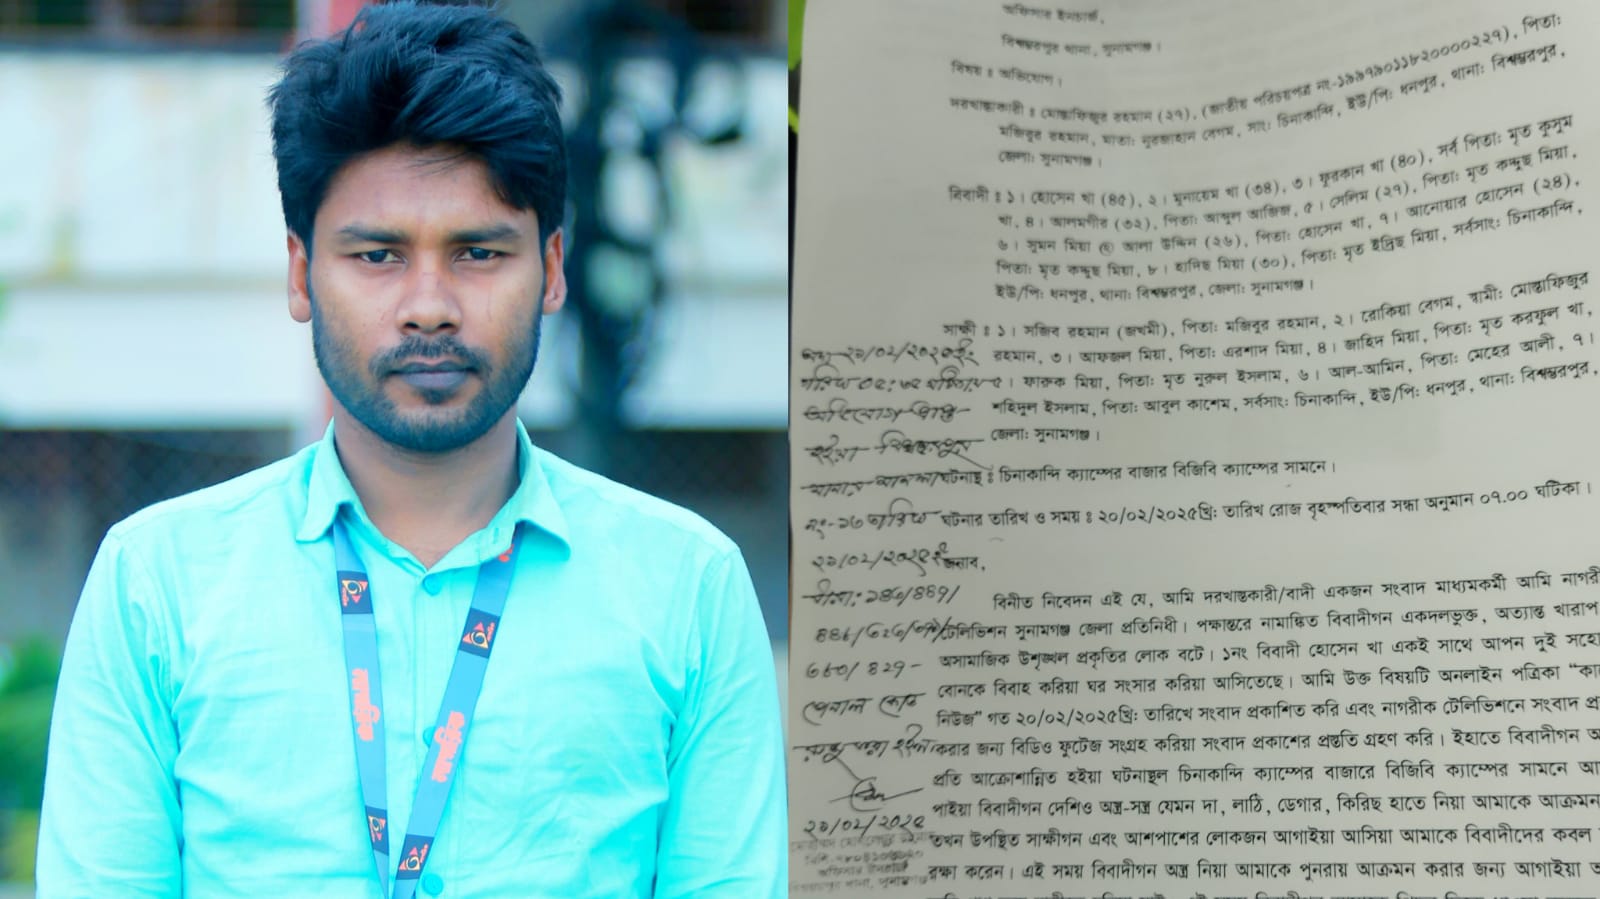 অফিসার ইনচার্জ,
বিশ্বম্ভরপুর থানা, সুনামগঞ্জ।
বিষয় ঃ অভিযোগ।
দরখাস্তকারী ঃ মোস্তাফিজুর রহমান (২৭), (জাতীয় পরিচয়পত্র নং-১৯৯৭৯০১১৮২০০০০২২৭), পিতা:
মজিবুর রহমান, মাতা: নুরজাহান বেগম, সাং: চিনাকান্দি, ইউ/পি: ধনপুর, থানা: বিশ্বম্ভরপুর,
জেলা: সুনামগঞ্জ।
বিবাদী ঃ ১। হোসেন খা (৪৫), ২। মুনায়েম খা (৩৪), ৩। ফুরকান খা (৪০), সর্ব পিতা: মৃত কুসুম
খা, ৪। আলমগীর (৩২), পিতা: আব্দুল আজিজ, ৫। সেলিম (২৭), পিতা: মৃত কদ্দুছ মিয়া,
৬। সুমন মিয়া @ আলা উদ্দিন (২৬), পিতা: হোসেন খা, ৭। আনোয়ার হোসেন (২৪),
পিতা: মৃত কদ্দুছ মিয়া, ৮। হাদিছ মিয়া (৩০), পিতা: মৃত ইদ্রিছ মিয়া, সর্বসাং: চিনাকান্দি,
ইউ/পি: ধনপুর, থানা: বিশ্বম্ভরপুর, জেলা: সুনামগঞ্জ।
সাক্ষী ঃ ১। সজিব রহমান (জখমী), পিতা: মজিবুর রহমান, ২। রোকিয়া বেগম, স্বামী: মোস্তাফিজুর
রহমান, ৩। আফজল মিয়া, পিতা: এরশাদ মিয়া, ৪। জাহিদ মিয়া, পিতা: মৃত করফুল খা,
৫। ফারুক মিয়া, পিতা: মৃত নুরুল ইসলাম, ৬। আল-আমিন, পিতা: মেহের আলী, ৭।
শহিদুল ইসলাম, পিতা: আবুল কাশেম, সর্বসাং: চিনাকান্দি, ইউ/পি: ধনপুর, থানা: বিশ্বম্ভরপুর,
জেলা: সুনামগঞ্জ।
ঘটনাস্থ ঃ চিনাকান্দি ক্যাম্পের বাজার বিজিবি ক্যাম্পের সামনে।
ঘটনার তারিখ ও সময় ঃ ২০/০২/২০২৫খ্রি: তারিখ রোজ বৃহস্পতিবার সন্ধা অনুমান ০৭.০০ ঘটিকা।
জনাব,
বিনীত নিবেদন এই যে, আমি দরখাস্তকারী/বাদী একজন সংবাদ মাধ্যমকর্মী আমি নাগরী
টেলিভিশন সুনামগঞ্জ জেলা প্রতিনিধী। পক্ষান্তরে নামাঙ্কিত বিবাদীগন একদলভুক্ত, অত্যান্ত খারাপ
অসামাজিক উশৃঙ্খল প্রকৃতির লোক বটে। ১নং বিবাদী হোসেন খা একই সাথে আপন দুই সহো
বোনকে বিবাহ করিয়া ঘর সংসার করিয়া আসিতেছে। আমি উক্ত বিষয়টি অনলাইন পত্রিকা “কা
নিউজ” গত ২০/০২/২০২৫খ্রি: তারিখে সংবাদ প্রকাশিত করি এবং নাগরীক টেলিভিশনে সংবাদ প্র
করার জন্য বিডিও ফুটেজ সংগ্রহ করিয়া সংবাদ প্রকাশের প্রস্ততি গ্রহণ করি। ইহাতে বিবাদীগন আ
প্রতি আক্রোশান্নিত হইয়া ঘটনাস্থল চিনাকান্দি ক্যাম্পের বাজারে বিজিবি ক্যাম্পের সামনে আ
পাইয়া বিবাদীগন দেশিও অস্ত্র-সস্ত্র যেমন দা, লাঠি, ডেগার, কিরিছ হাতে নিয়া আমাকে আক্রমন
তখন উপস্থিত সাক্ষীগন এবং আশপাশের লোকজন আগাইয়া আসিয়া আমাকে বিবাদীদের কবল
রক্ষা করেন। এই সময় বিবাদীগন অস্ত্র নিয়া আমাকে পুনরায় আক্রমন করার জন্য আগাইয়া
২১/০২/২০২৫